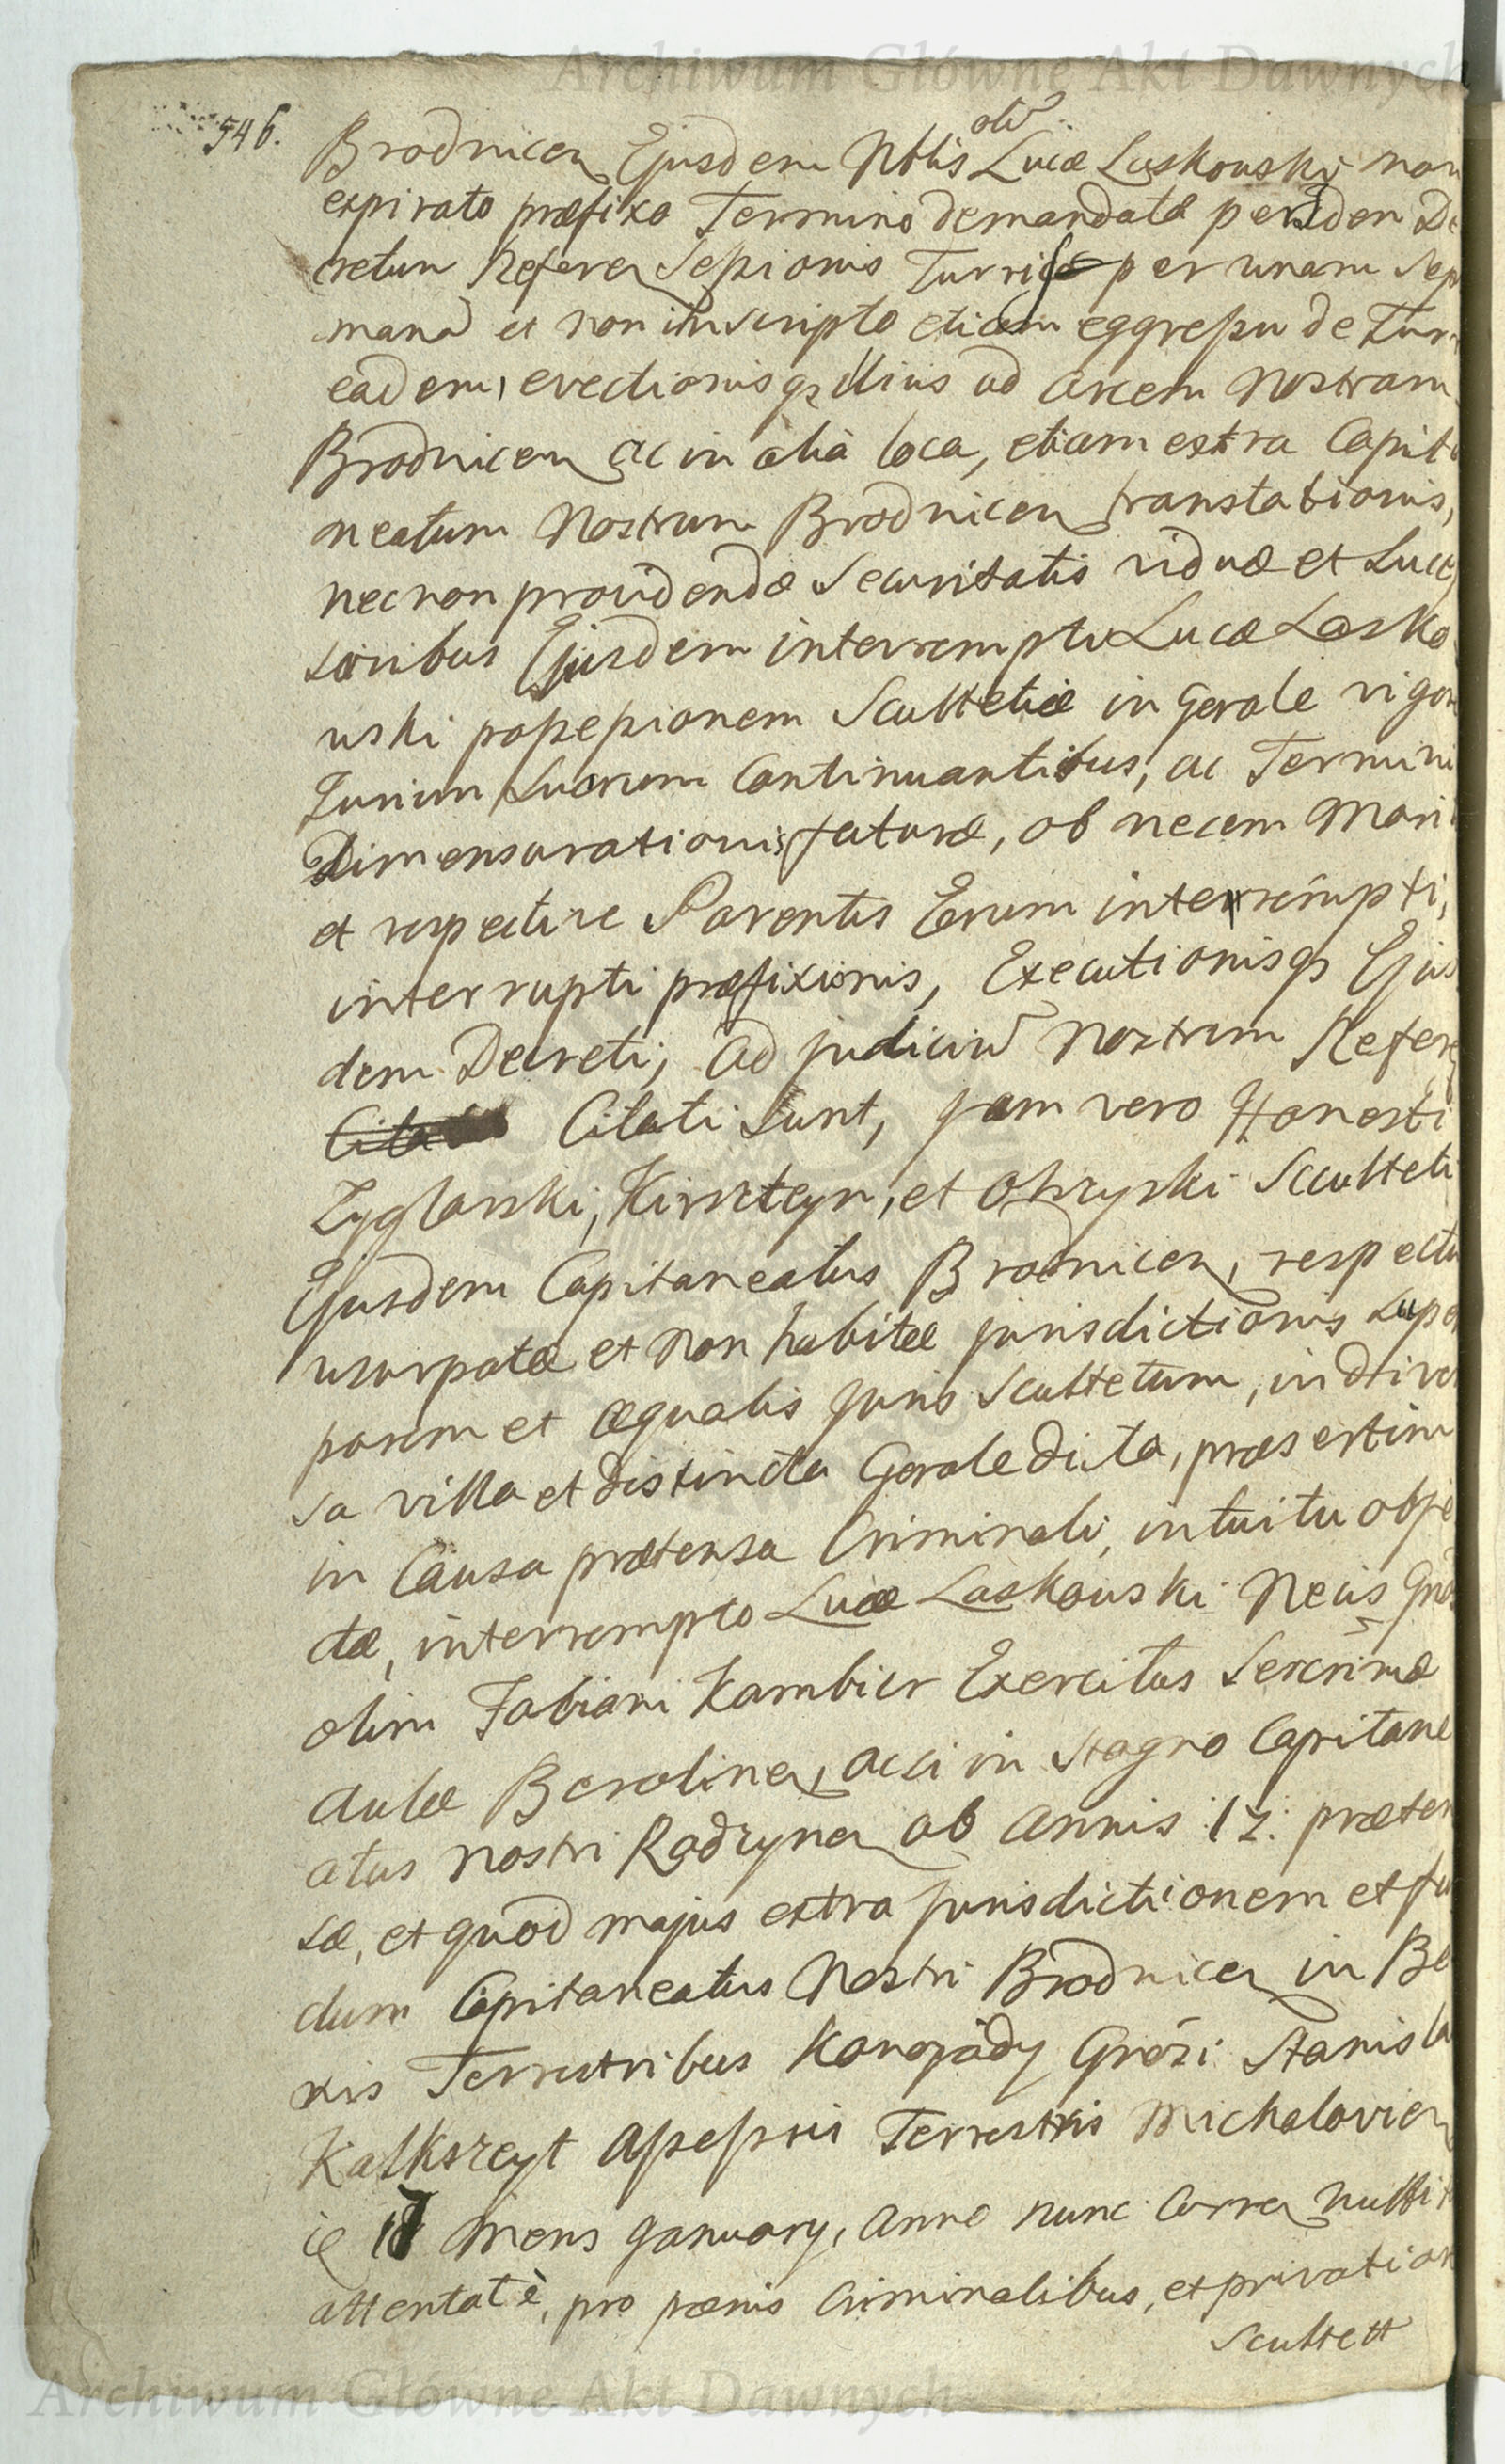 Archiwum Główne Akt Dawnych
546.
olim
Brodnicen Ejusdem Nblis Lucæ Laskouski non
expirato præfixo Termino demandatæ per idem De
cretum Referen Sessionis Turris per unam Sep
mana et non inscripto etiam eggressu de Turr
eadem, evectionisq illius ad Arcem Nostram
Brodnicen ac in alia loca, etiam extra Capit
neatum Nostrum Brodnicen translationis,
necnon providendæ Securitatis viduæ et Succes
soribus Ejusdem interrempti Lucæ Lasko
uski possessionem Scultetiæ in Gorale vigore
Jurium Suorum Continuantibus, ac Termini
Dimensurationis faturæ, ob necem Mari
et respective Parentis Eorum interrempti,
interrupti præfixionis, Executionisq Ejus
dem Decreti, ad judiciū Nostrum Referen
Citati Sunt, Jam vero Honesti
Zyglarski, Kirszteyn, et Obryski Sculteti
Ejusdem Capitaneatus Brodnicen, respectu
usurpatæ et non habitæ jurisdictionis super
parem et æqualis Juris Scultetum, in diver
sa villa et distincta Gorale dicta, præsertim
in Causa prætensa Criminali, intuitu obje
ctæ, interrempto Lucæ Laskouski Necis Gnosi
olim Fabiani Kambier Exercitus Serenimæ
Aulæ Berolinen, acsi in Stagno Capitane
atus Nostri Radzynen ab Annis 17. præten
sæ, et quod majus extra jurisdictionem et fu
dum Capitaneatus Nostri Brodnicen in Bo
nis Terrestribus Konojady Gnosi Stanisla
Kalkszeyt Assessoris Terrestris Michalovien
ie 17 Mens January, Anno nunc Curren nulli
attentatè, pro pœnis Criminalibus, et privation
Scultett
Archiwum Główne Akt Dawnych